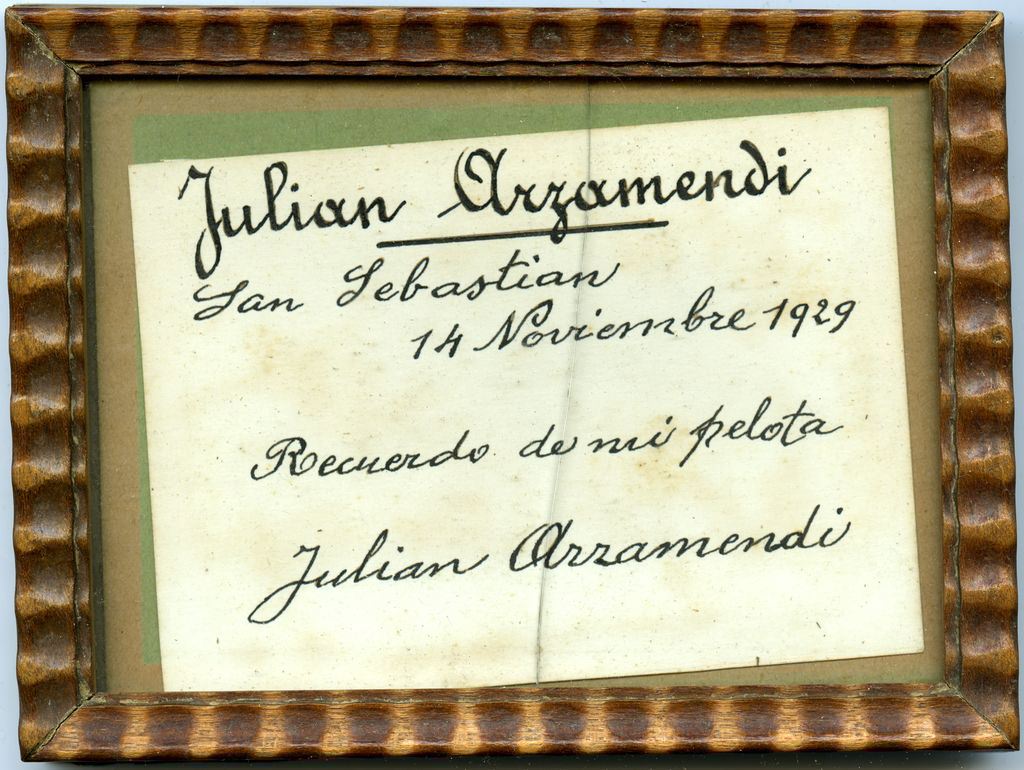 Julian Arzamendi
San Sebastian
14 Noviembre 1929
Recuerdo de mi pelota
Julian Arzamendi